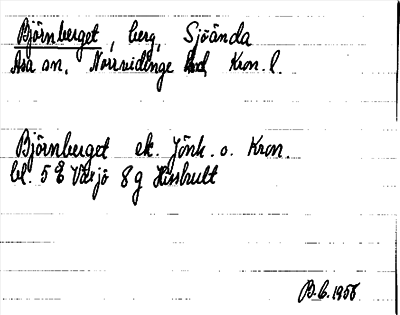 Björnberget, berg, Sjöända
Asa sn, Norrvidinge hd, Kron. l.
Björnberget ek. Jönk. o. Kron.
bl. 5 E Växjö 8 g Hisshult
B.C. 1956